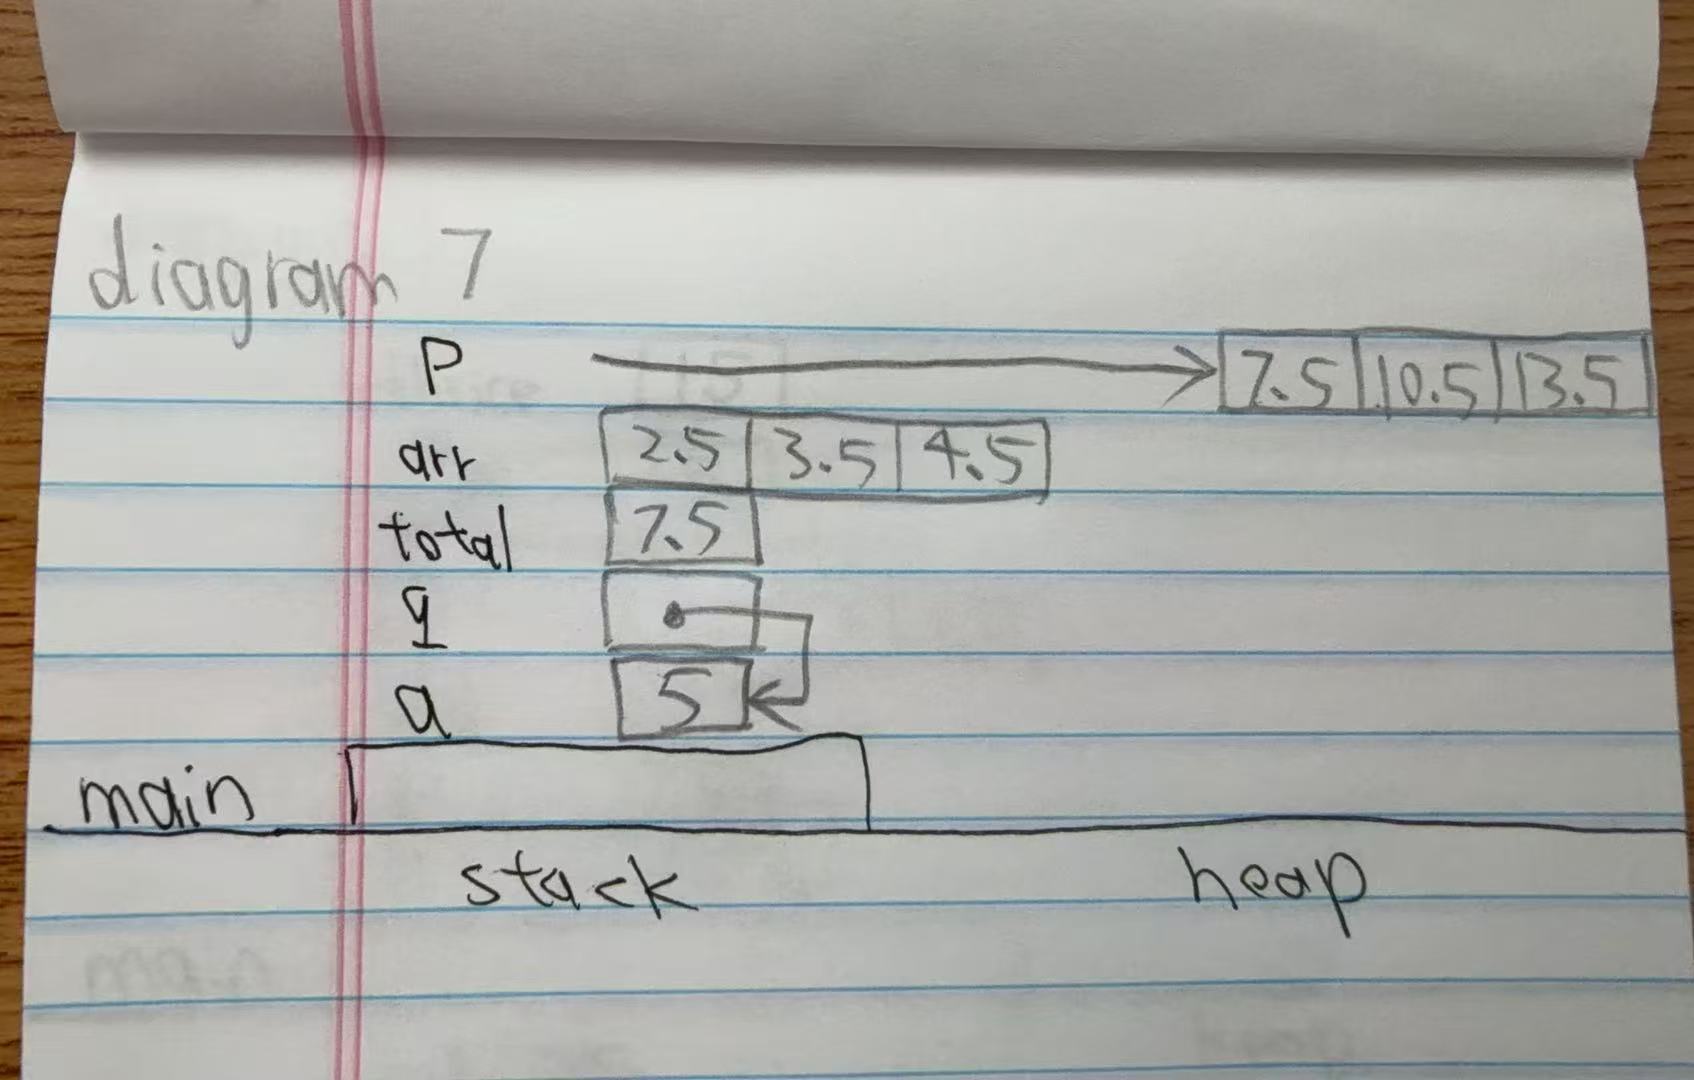 diagram 7
P 7.5 10.5 13.5
arr 2.5 3.5 4.5
total 7.5
q
a 5
main
stack heap